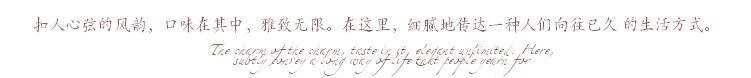 扣人心弦的风韵，口味在其中，雅致无限。在这里，细腻地传达一种人们向往已久 的生活方式。
The charm of the charm, taste in it, elegant unlimited. Here,
subtly convey a long way of life that people yearn for